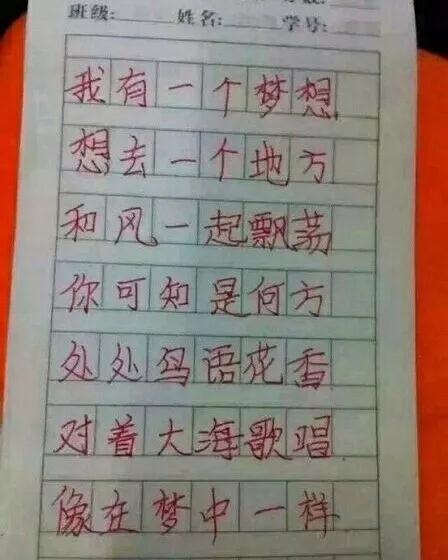 班级: 姓名: 学号:
我有一个梦想
想去一个地方
和风一起飘荡
你可知是何方
处处鸟语花香
对着大海歌唱
像在梦中一样